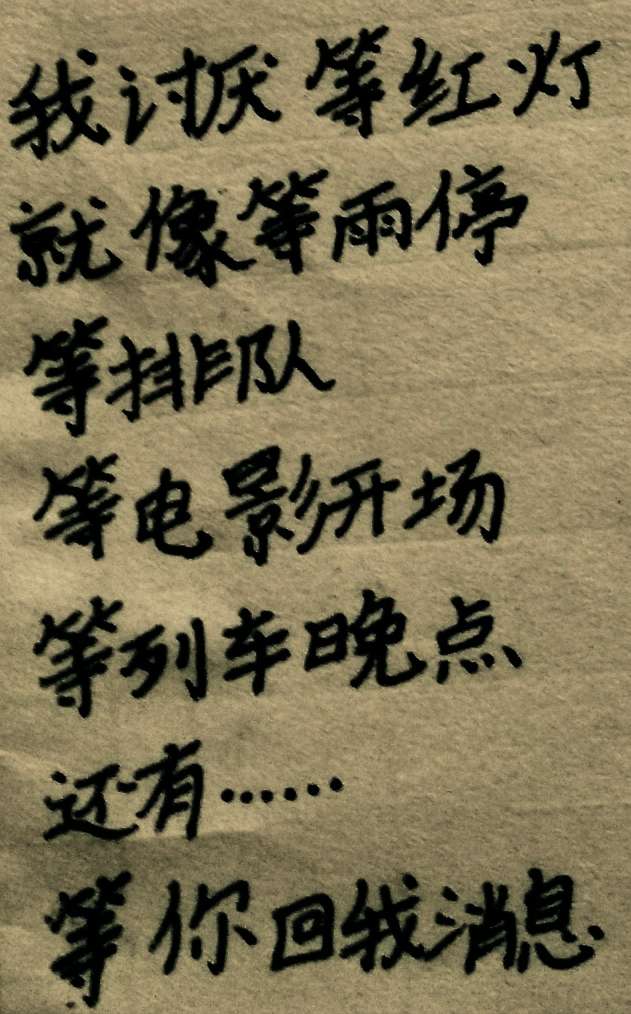 我讨厌等红灯
就像等雨停
等排队
等电影开场
等列车晚点
还有……
等你回我消息